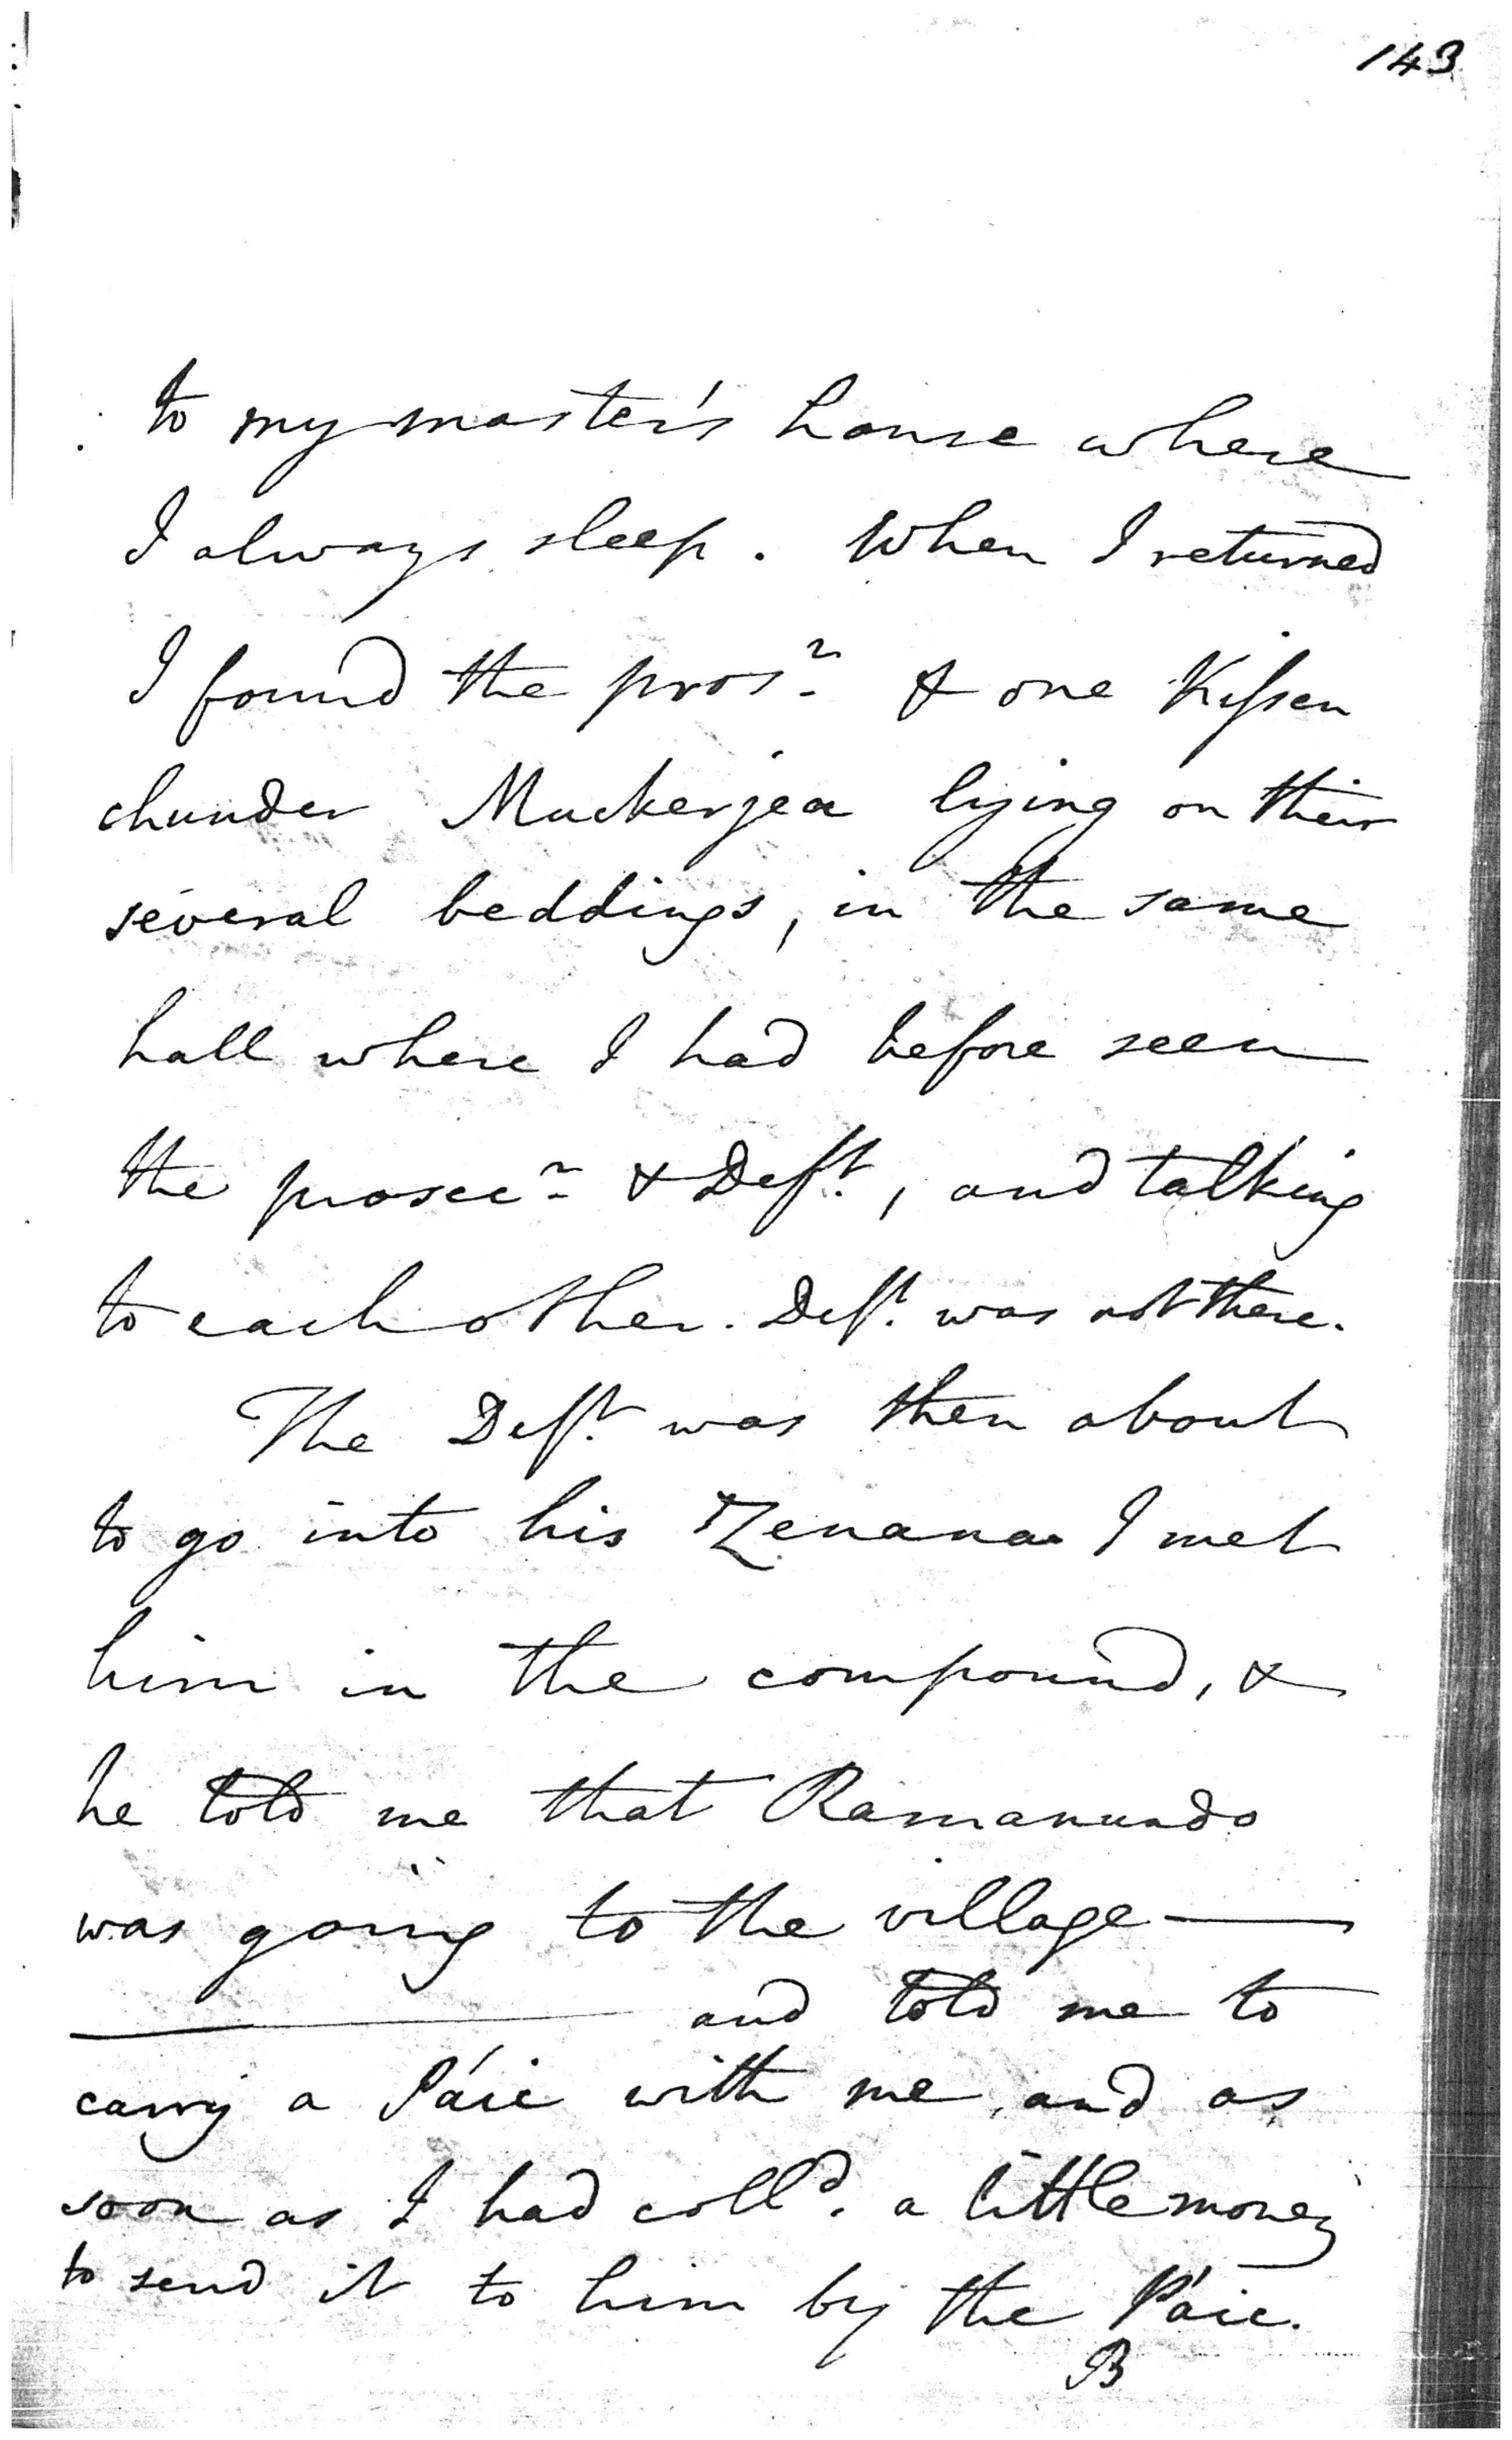 143
to my master's house where
I always sleep. When I returned
I found the pros^r. & one Kissen
chunder Muckerjea lying on their
several beddings, in the same
hall where I had before seen
the prosec^r. & Def^t., and talking
to each other. Def^t. was not there.
The Def^t. was then about
to go into his Zenana I met
him in the compound, &
he told me that Ramanundo
was going to the village —
— and told me to
carry a Páic with me, and as
soon as I had coll^d. a little money
to send it to him by the Páic.
B